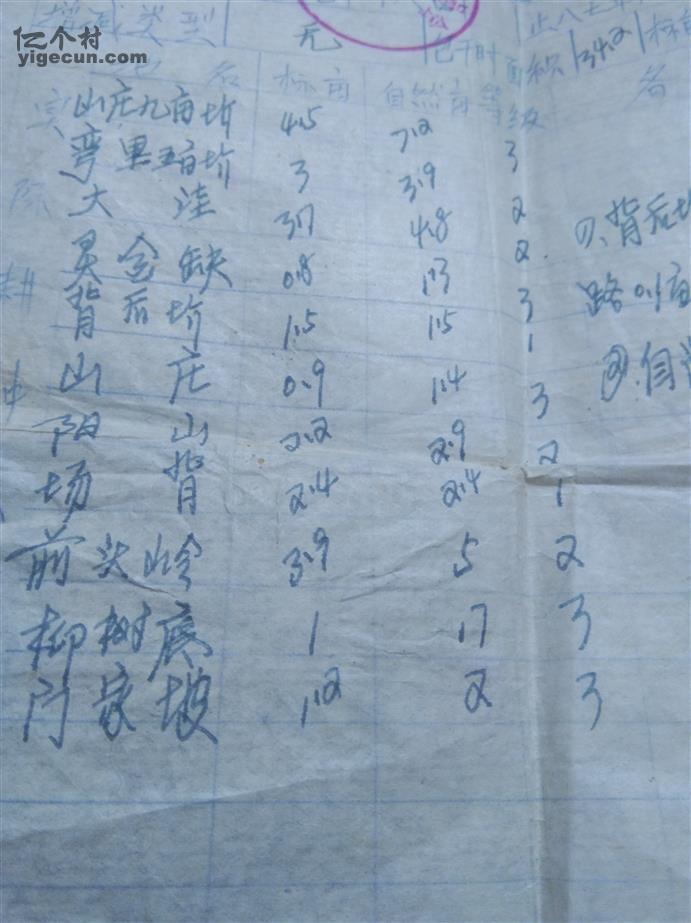 亿个村
yigecun.com
增减类型 无 包干时面积 34.2 标亩
名 标亩 自然亩 等级 名
山庄九亩坊 4.5 7.2 3
弯里五亩坊 3 3.9 2
大洼 3.7 4.8 2
灵金缺 0.8 1.3 3
背后坊 1.5 1.5 1
山庄 0.9 1.4 3
阳山 2.2 2.9 2
场背 2.4 2.4 1
前头岭 3.9 5 2
柳树底 1 1.7 3
门家坡 1.2 2 3
四、背后
路0.1亩